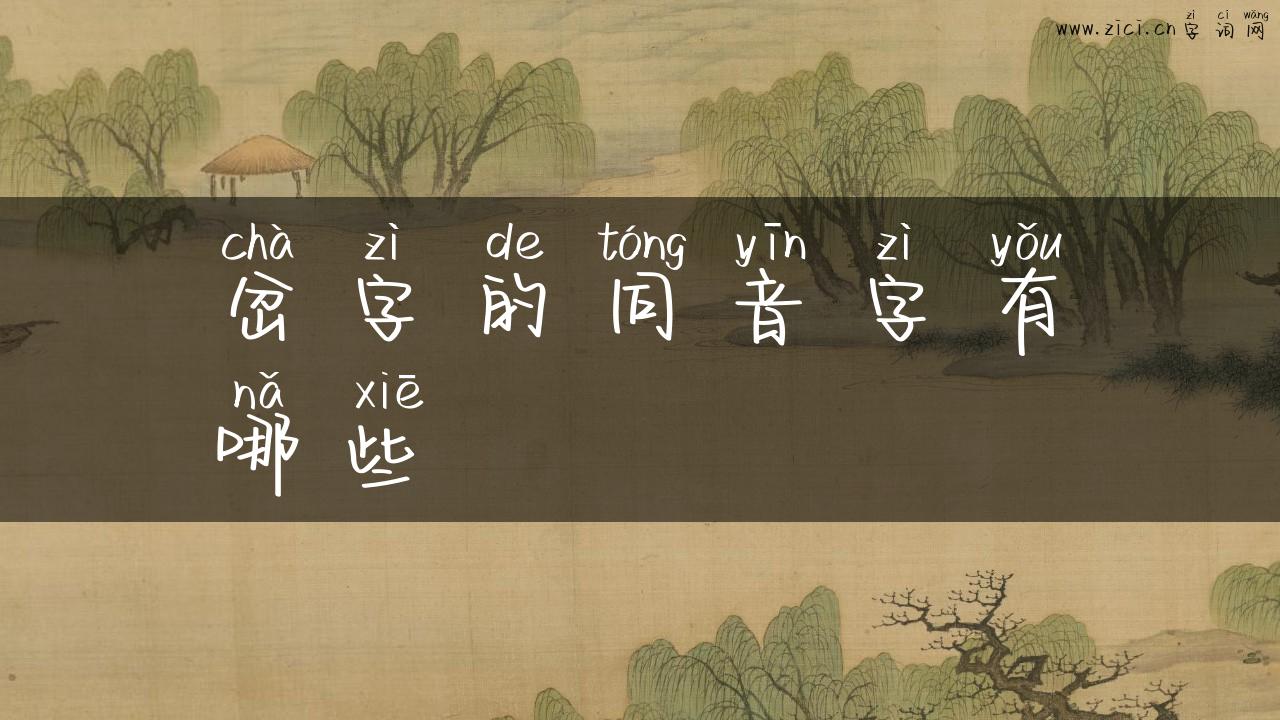 zì cí wǎng
www.zici.cn 字词网
chà zì de tóng yīn zì yǒu
岔字的同音字有
nǎ xiē
哪些